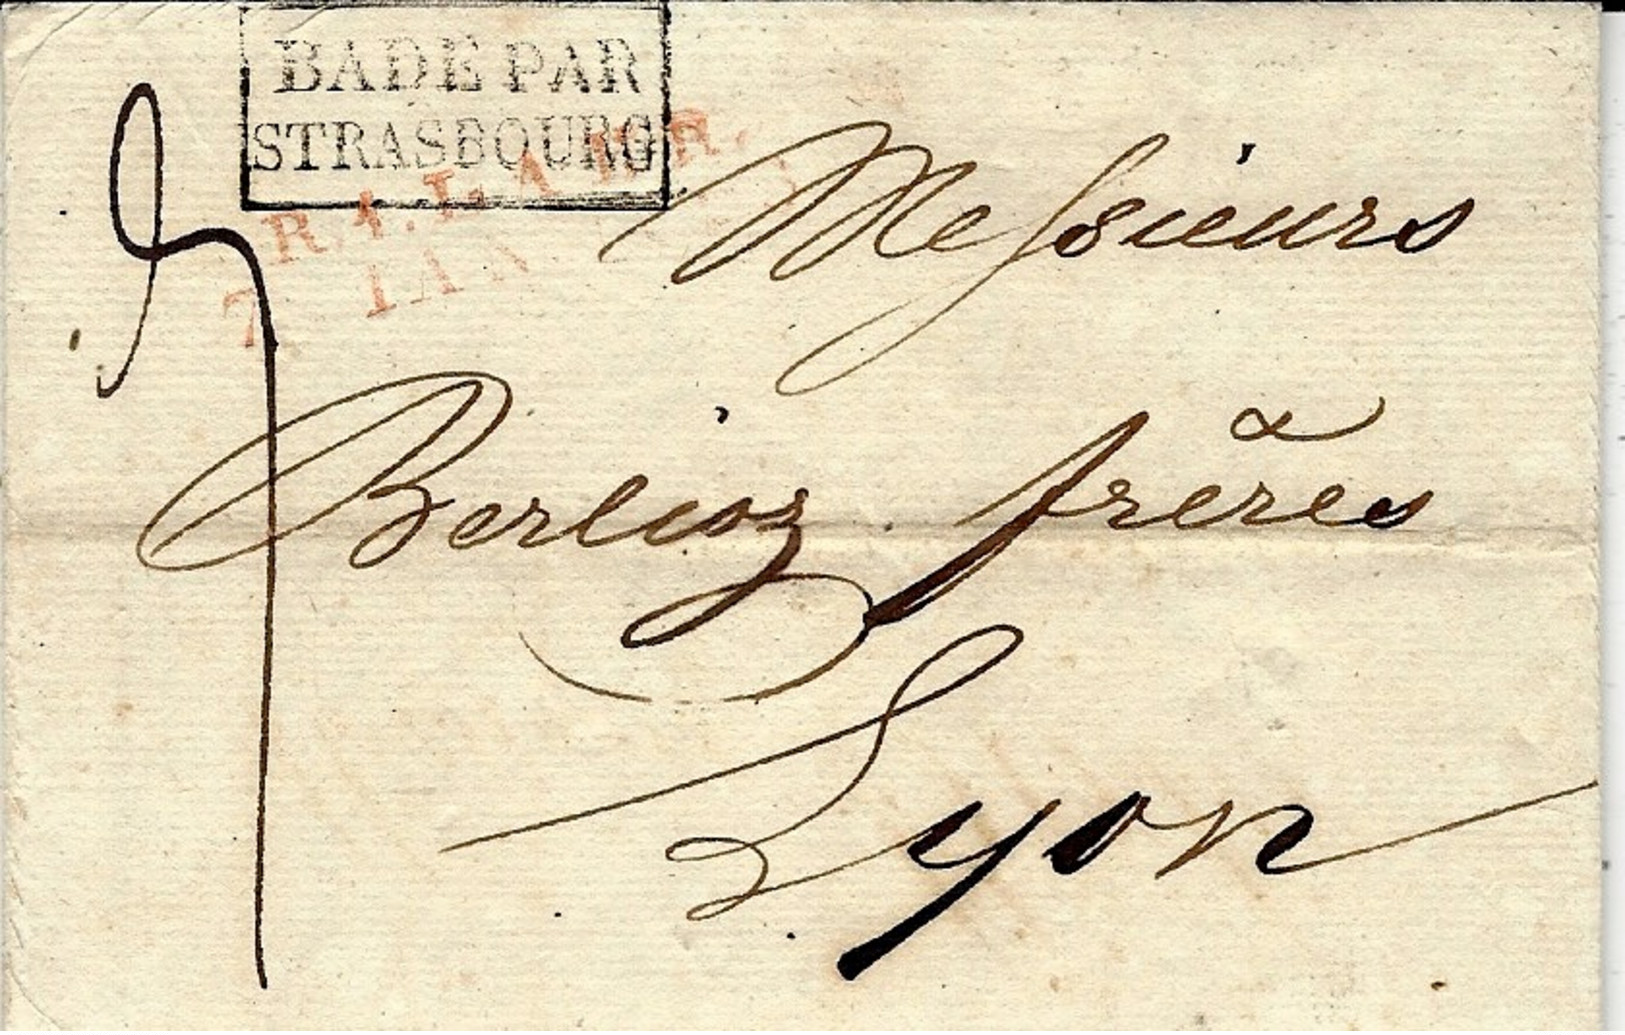 BADE PAR
STRASBOURG
R.1.L.A
7 IAN
Messieurs
Berlioz frères
Lyon